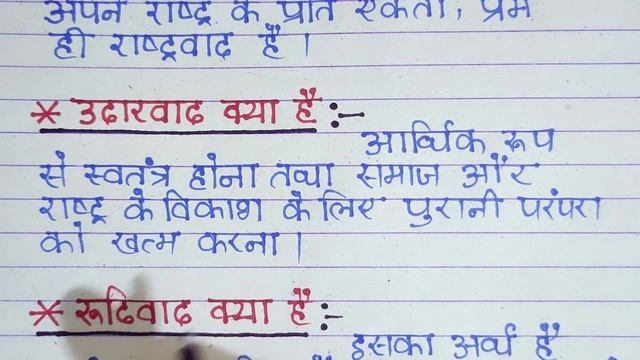 अपने राष्ट्र के प्रति एकता, प्रेम
ही राष्ट्रवाद है ।
* उदारवाद क्या है :-
आर्थिक रूप
से स्वतंत्र होना तथा समाज और
राष्ट्र के विकाश के लिए पुरानी परंपरा
को खत्म करना ।
* रूढिवाद क्या है :-
इसका अर्थ है